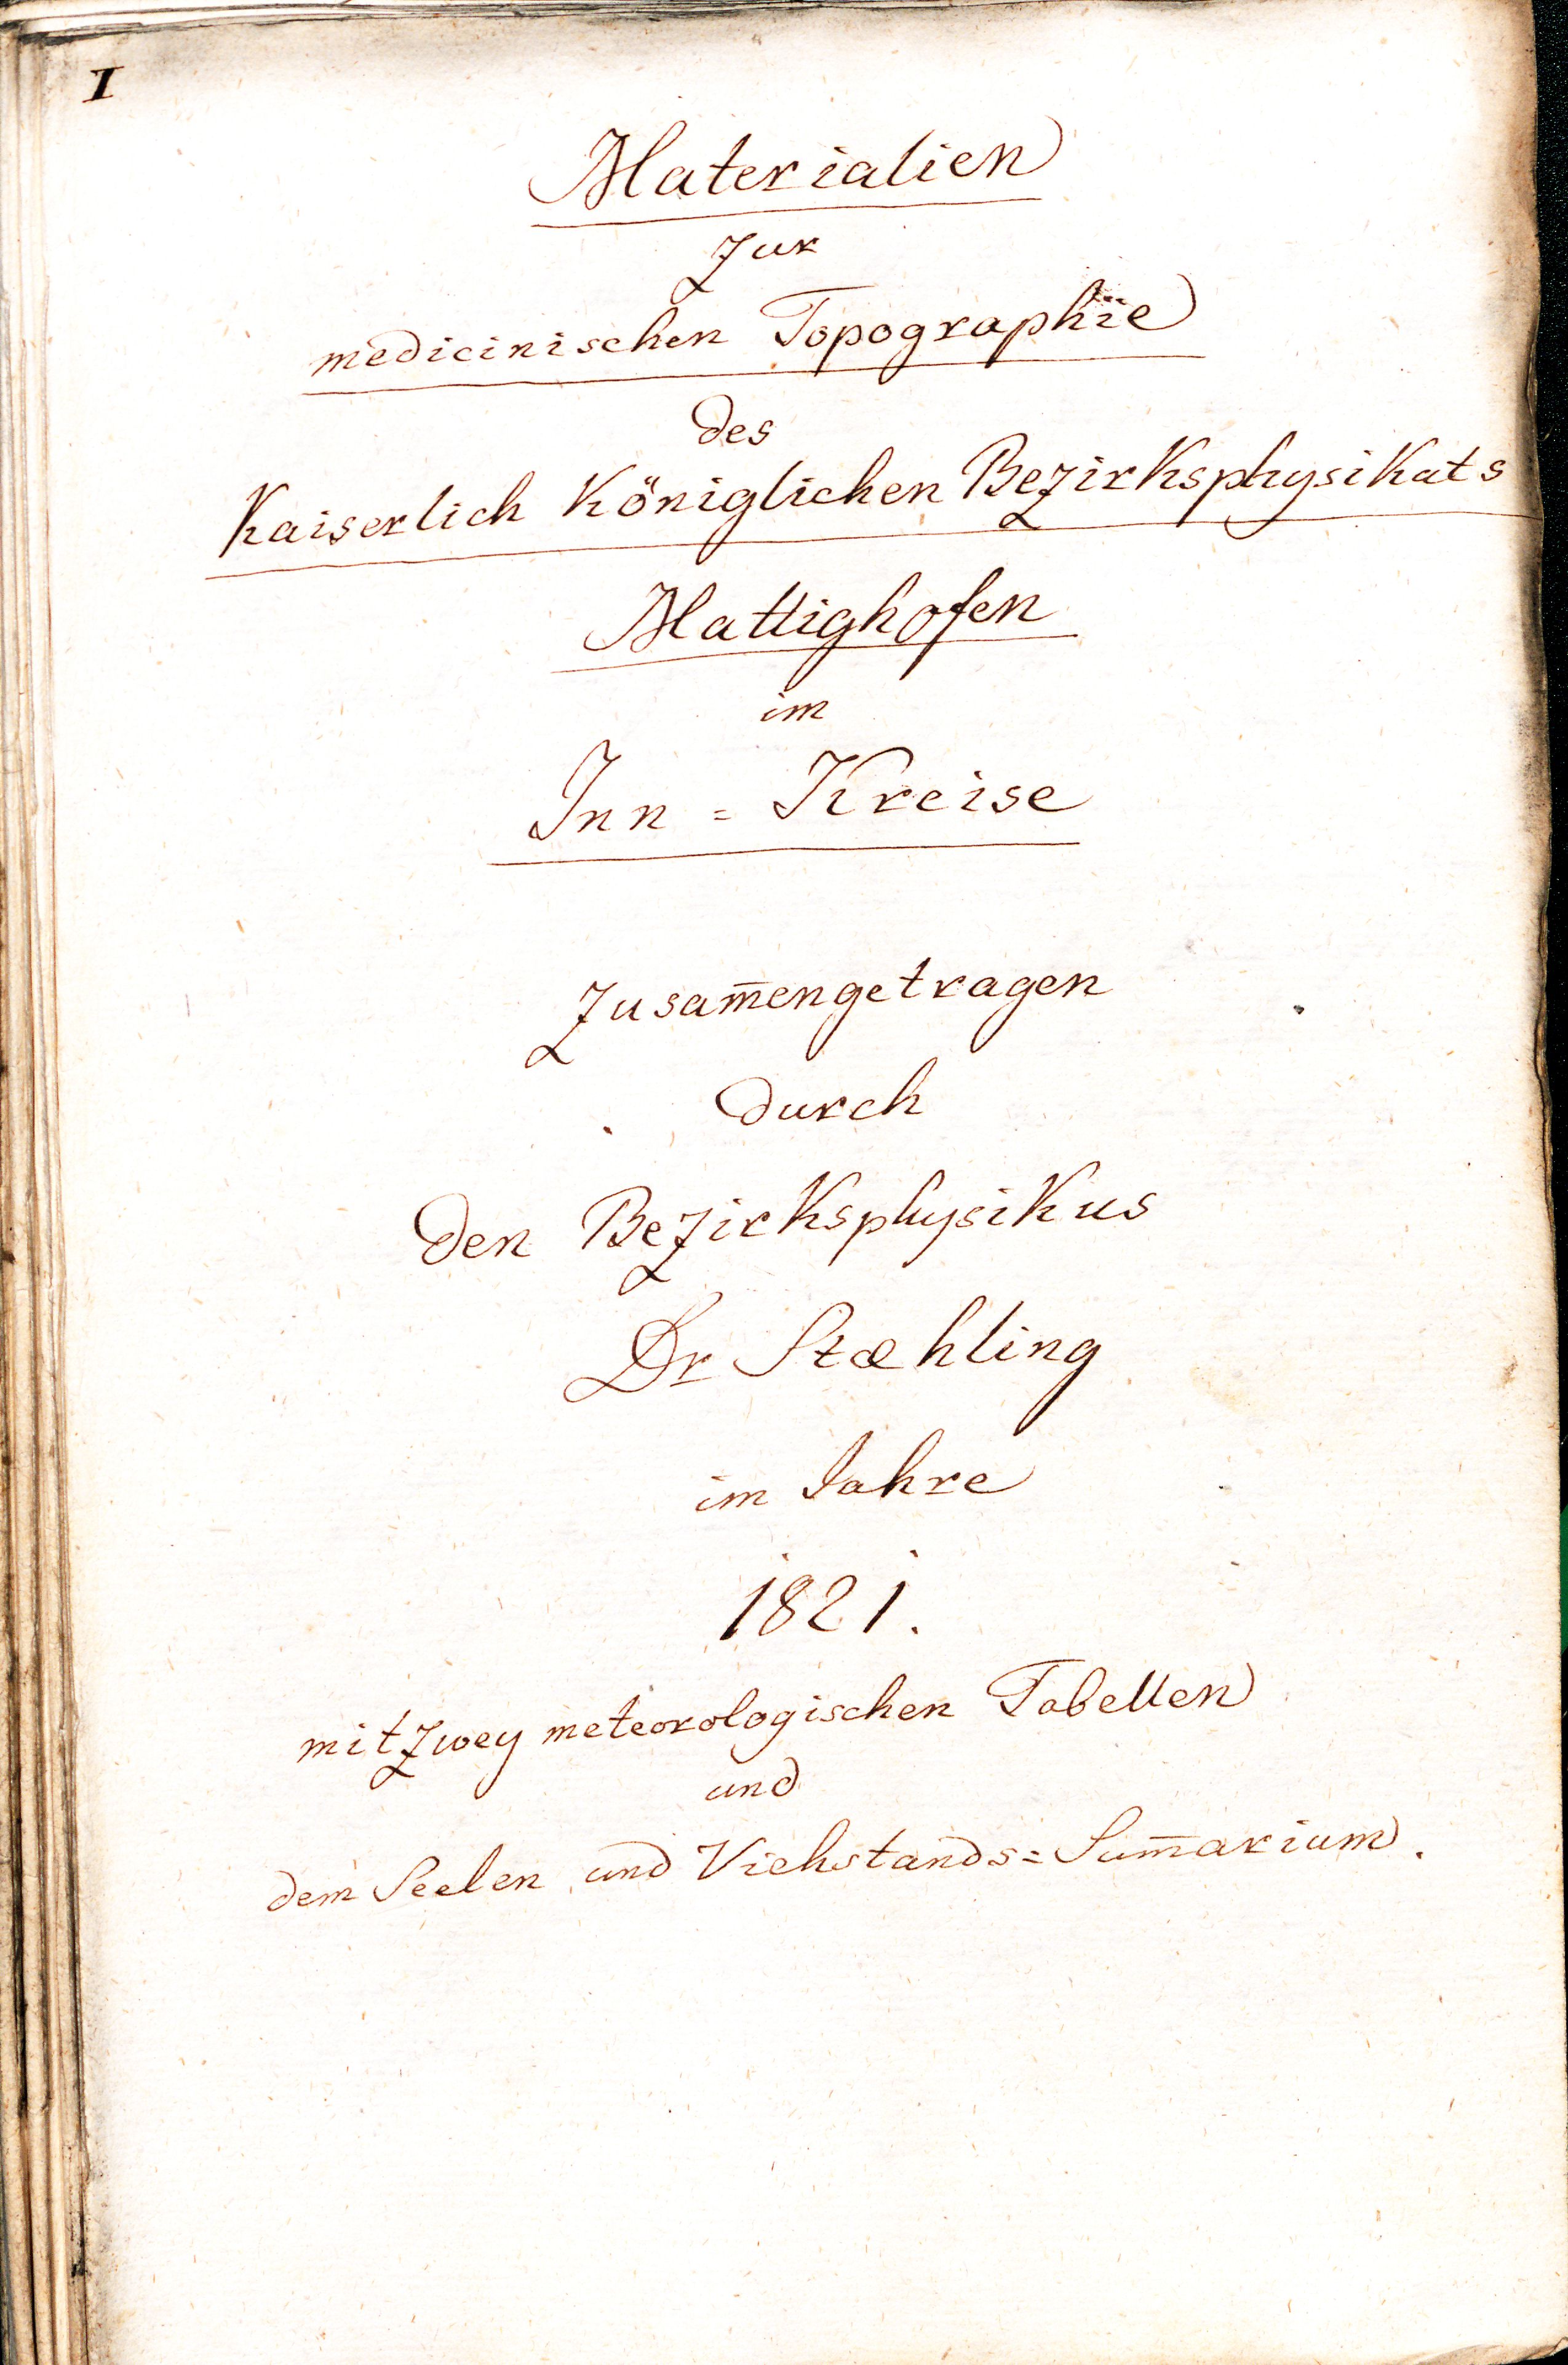 I
Materialien
zur
medicinischen Topographïe
des
Kaiserlich Königlichen Bezirksphysikats
Mattighofen
im
Inn = Kreise
zusam̄engetragen
durch
den Bezirksphysikus
Dr Stæhling
im Jahre
1821.
mit zwey meteorologischen Tabellen
und
dem Seelen und Viehstands = Sum̄arium.